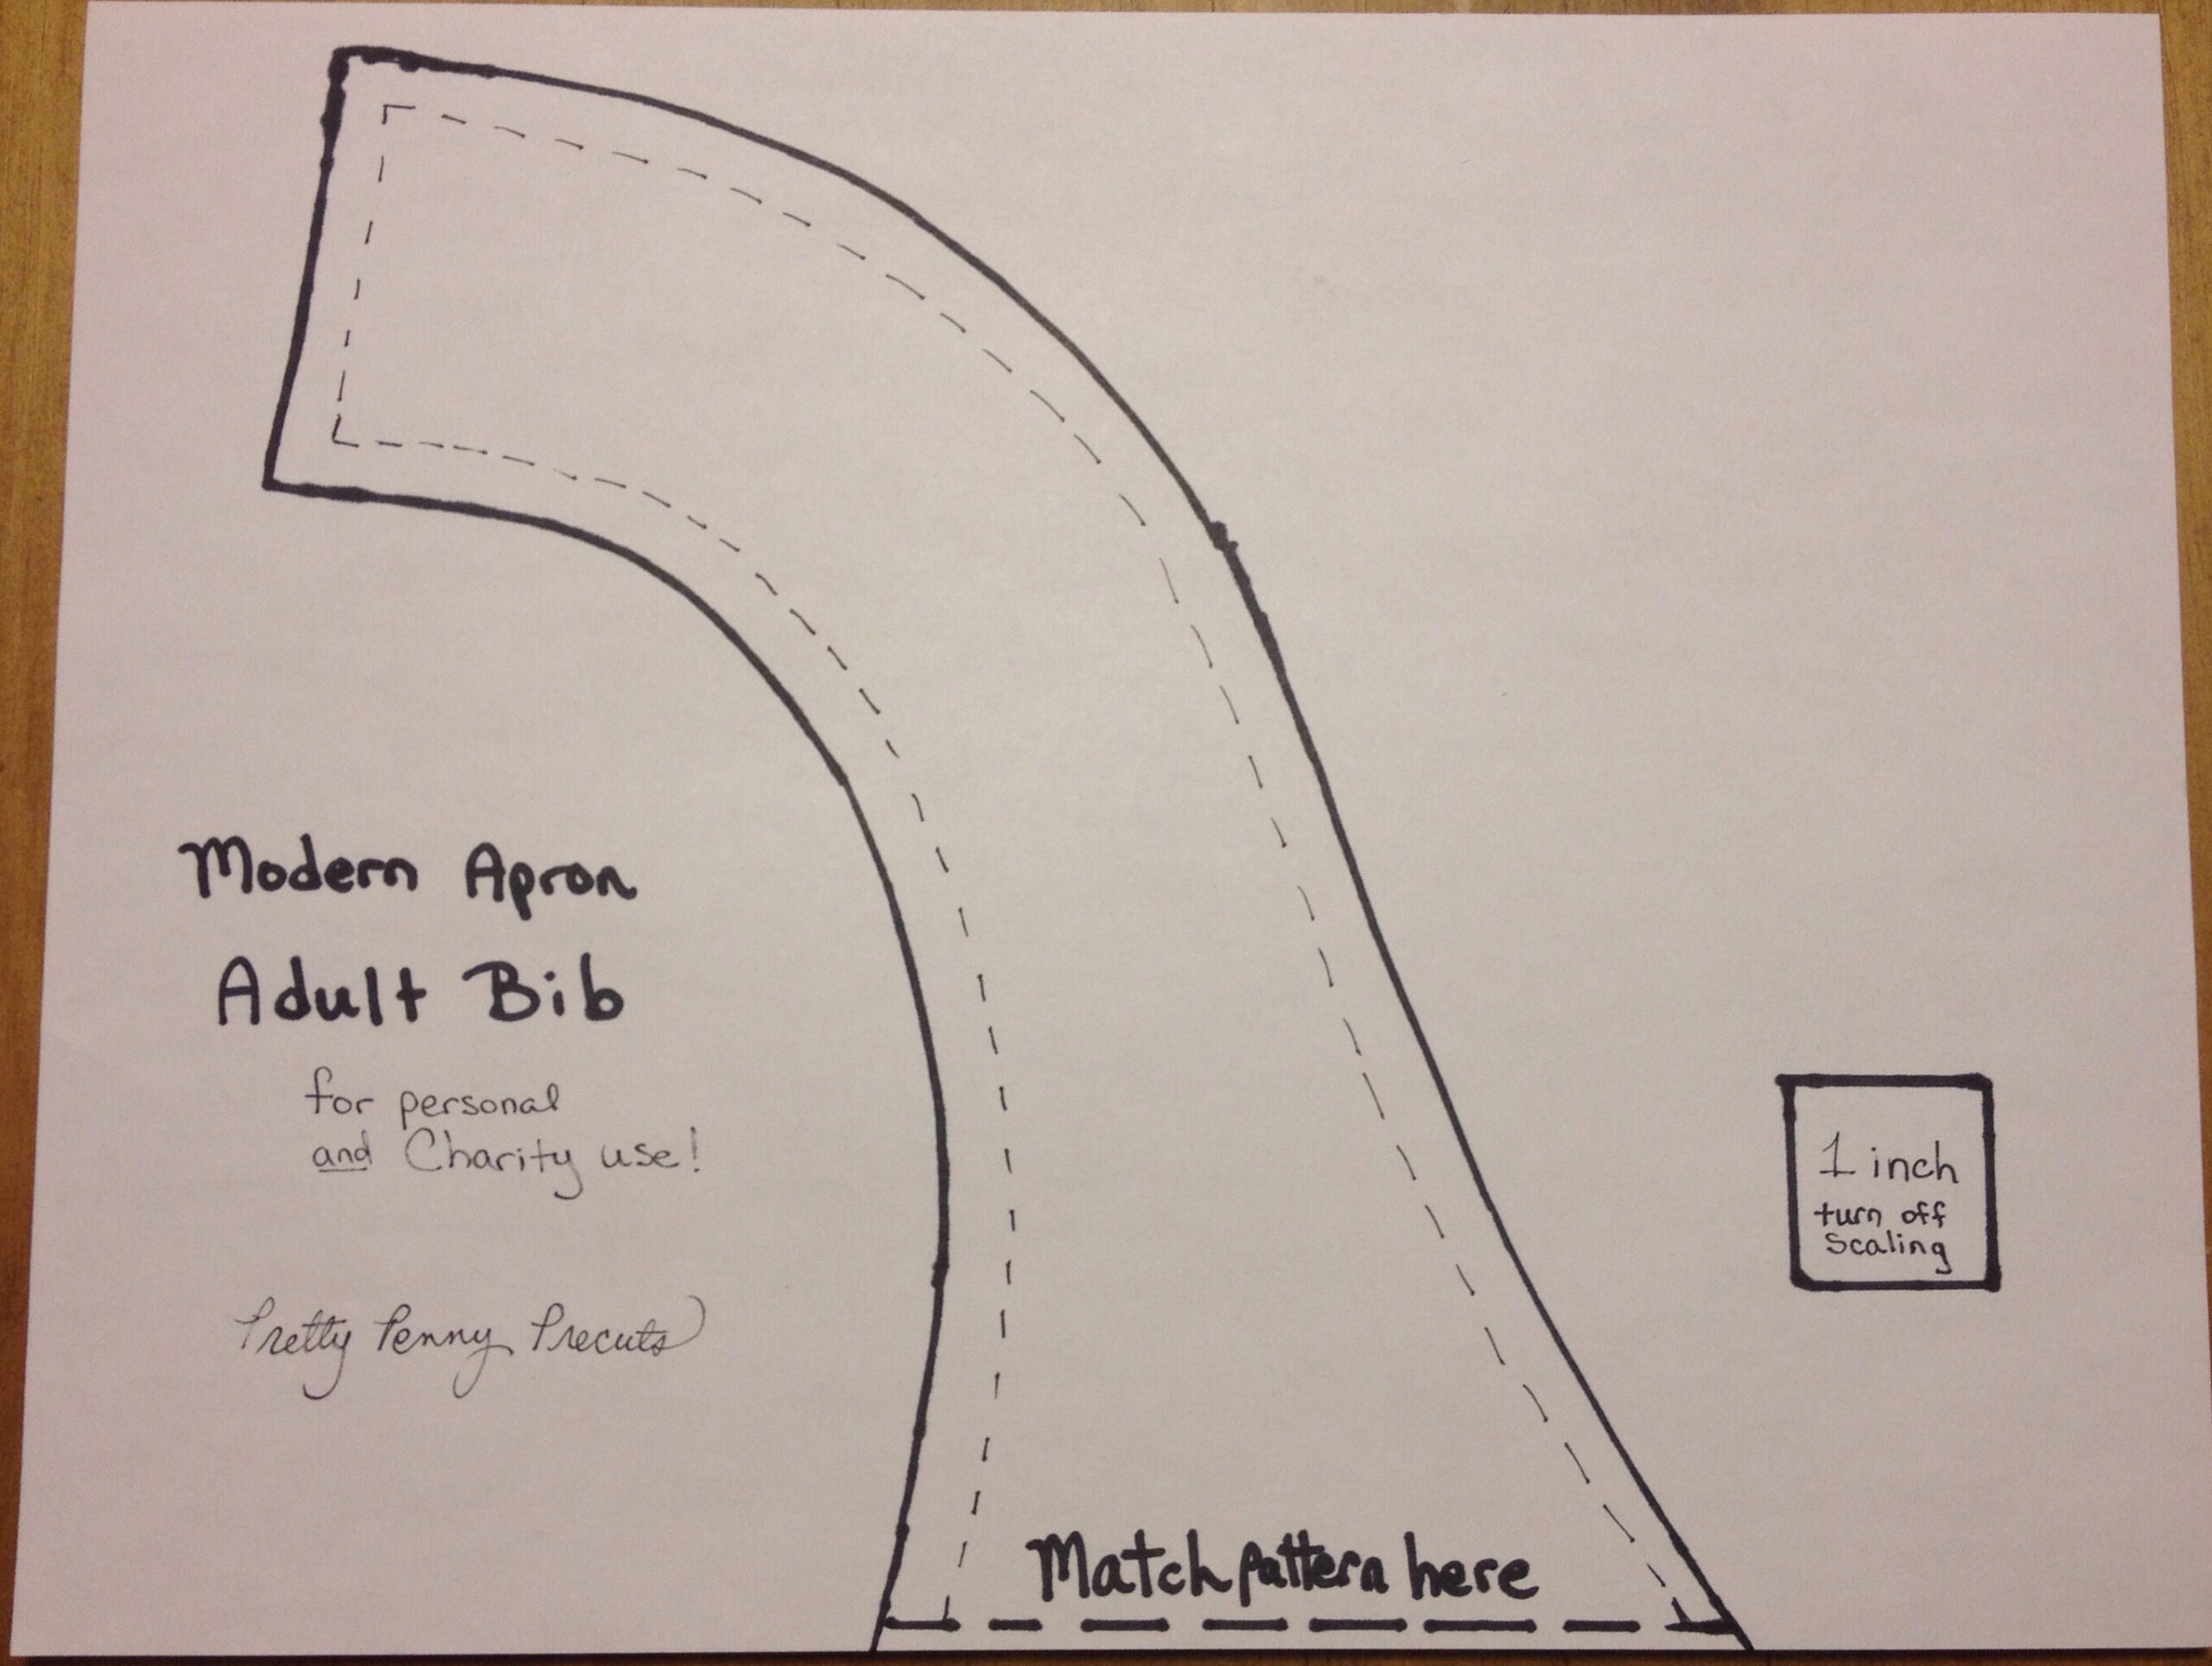 Modern Apron
Adult Bib
for personal
and Charity use!
Pretty Penny Precuts
1 inch
turn off
scaling
Match pattern here